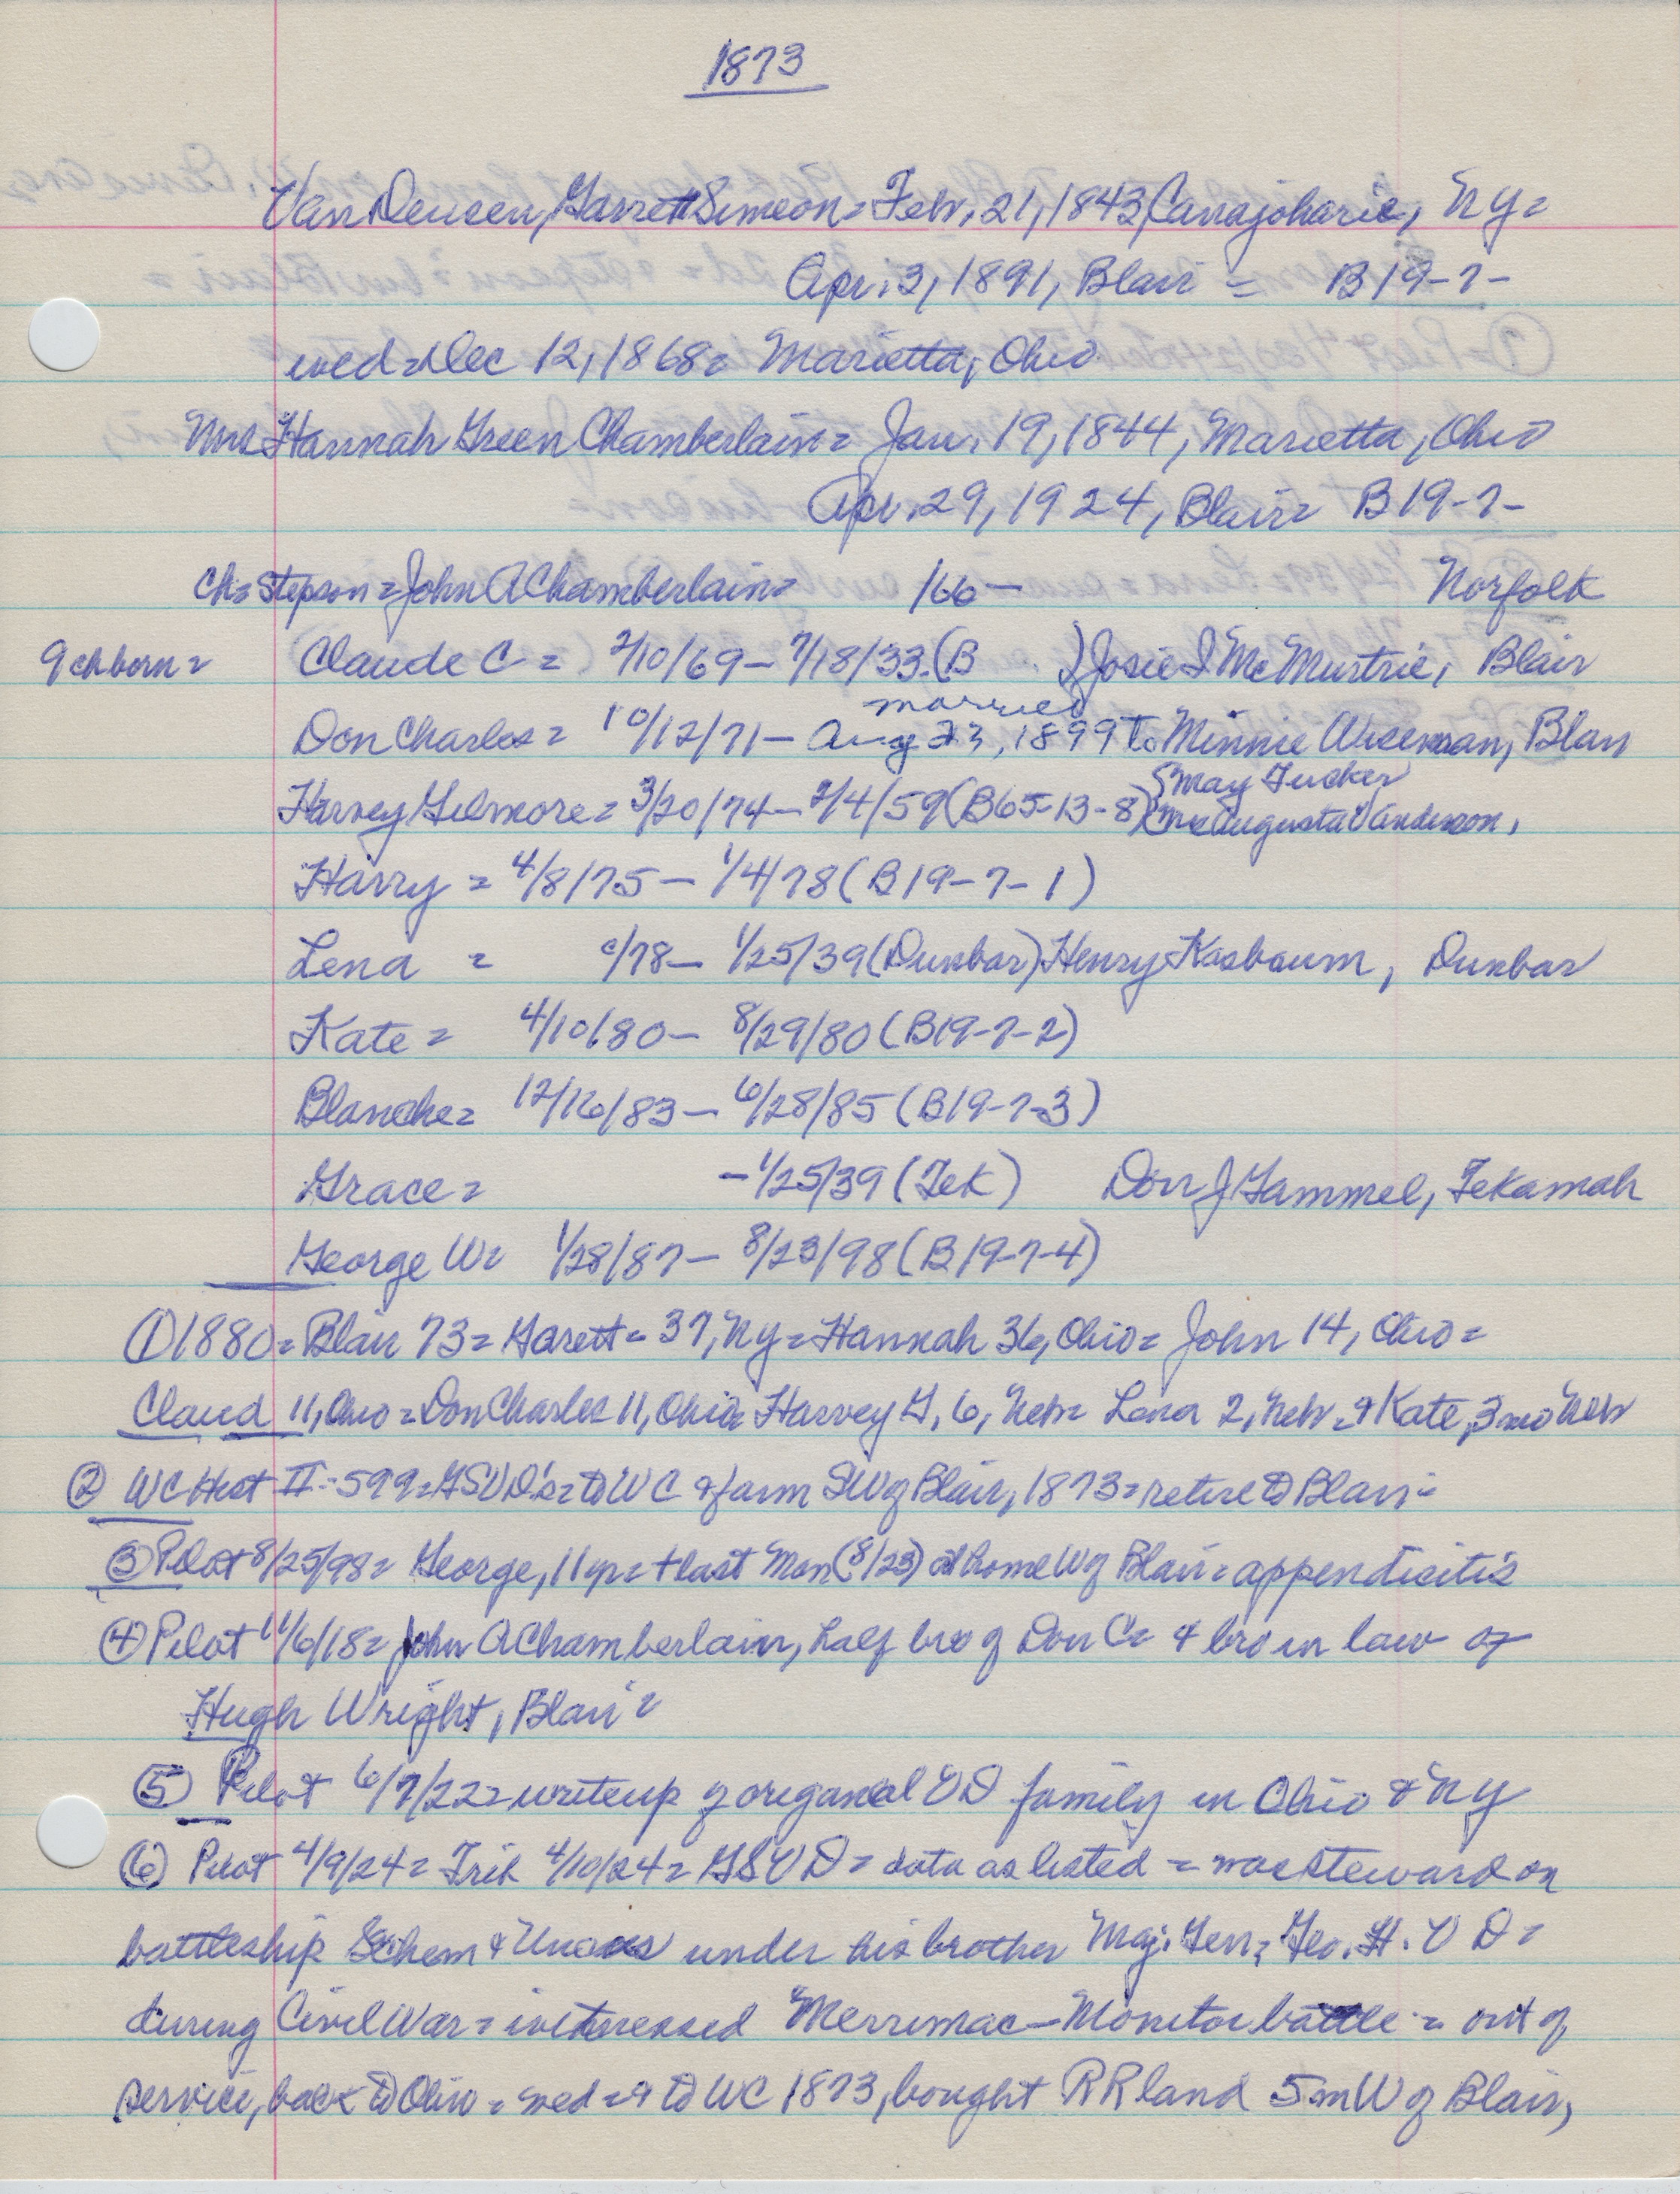 1873
Van Deusen, Garrett Simeon = Feb. 21, 1843, Canajoharie, NY =
Apr. 3, 1891, Blair = B19-7-
wed = Dec 12, 1868 = Marietta, Ohio
Mrs Hannah Green Chamberlain = Jan. 19, 1844, Marietta, Ohio
Apr. 29, 1924, Blair = B19-7-
Ch = Stepson = John A Chamberlain = /66 — Norfolk
9 ch born = Claude C = 2/10/69 — 7/18/33 (B ) Josie I McMurtrie, Blair
married
Don Charles = 10/12/71 — Aug 23, 1899 to Minnie Wiseman, Blair
{May Tucker
Harvey Gilmore = 3/20/74 — 2/4/59 (B65-13-8) {Mrs Augusta V Anderson,
Harry = 4/8/75 — 1/4/78 (B19-7-1)
Lena = /78 — 1/25/39 (Dunbar) Henry Kasbaum, Dunbar
Kate = 4/10/80 — 8/29/80 (B19-7-2)
Blanche = 12/16/83 — 6/28/85 (B19-7-3)
Grace = — 1/25/39 (Tek) Don J Gammel, Tekamah
George W = 1/28/87 — 8/23/98 (B19-7-4)
① 1880 = Blair 73 = Garett = 37, NY = Hannah 36, Ohio = John 14, Ohio =
Claud 11, Ohio = Don Charles 11, Ohio = Harvey G, 6, Neb = Lena 2, Neb = & Kate, 3 mo Neb
② WC Hist II - 599 = GSVD's = to WC & farm SW of Blair, 1873 = retire to Blair =
③ Pilot 8/25/98 = George, 11 yr = + last Mon (8/23) at home W of Blair = appendicitis
④ Pilot 11/6/18 = John A Chamberlain, half bro of Don C = & bro in law of
Hugh Wright, Blair =
⑤ Pilot 6/7/22 = writeup of origanal VD family in Ohio & NY
⑥ Pilot 4/9/24 = Trib 4/10/24 = GSVD = data as listed = was steward on
battleship & Uncas under his brother Maj. Gen. Geo. H. VD =
during Civil War = witnessed Merrimac — Monitor battle = out of
service, back to Ohio = wed = & to WC 1873, bought RR land 5 m W of Blair,